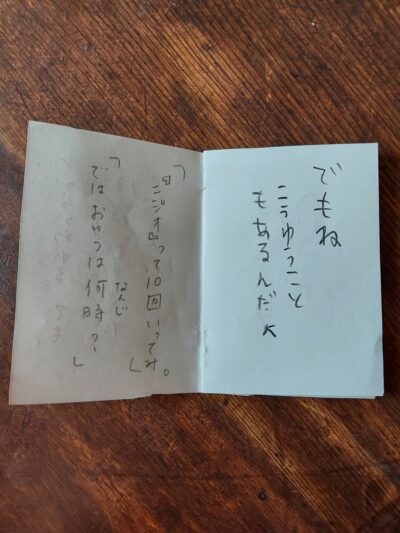 でもね
こうゆうこと
もあるんだ
「『ニジオ』って10回いってみ。」
なんじ
「ではおやつは何時？」